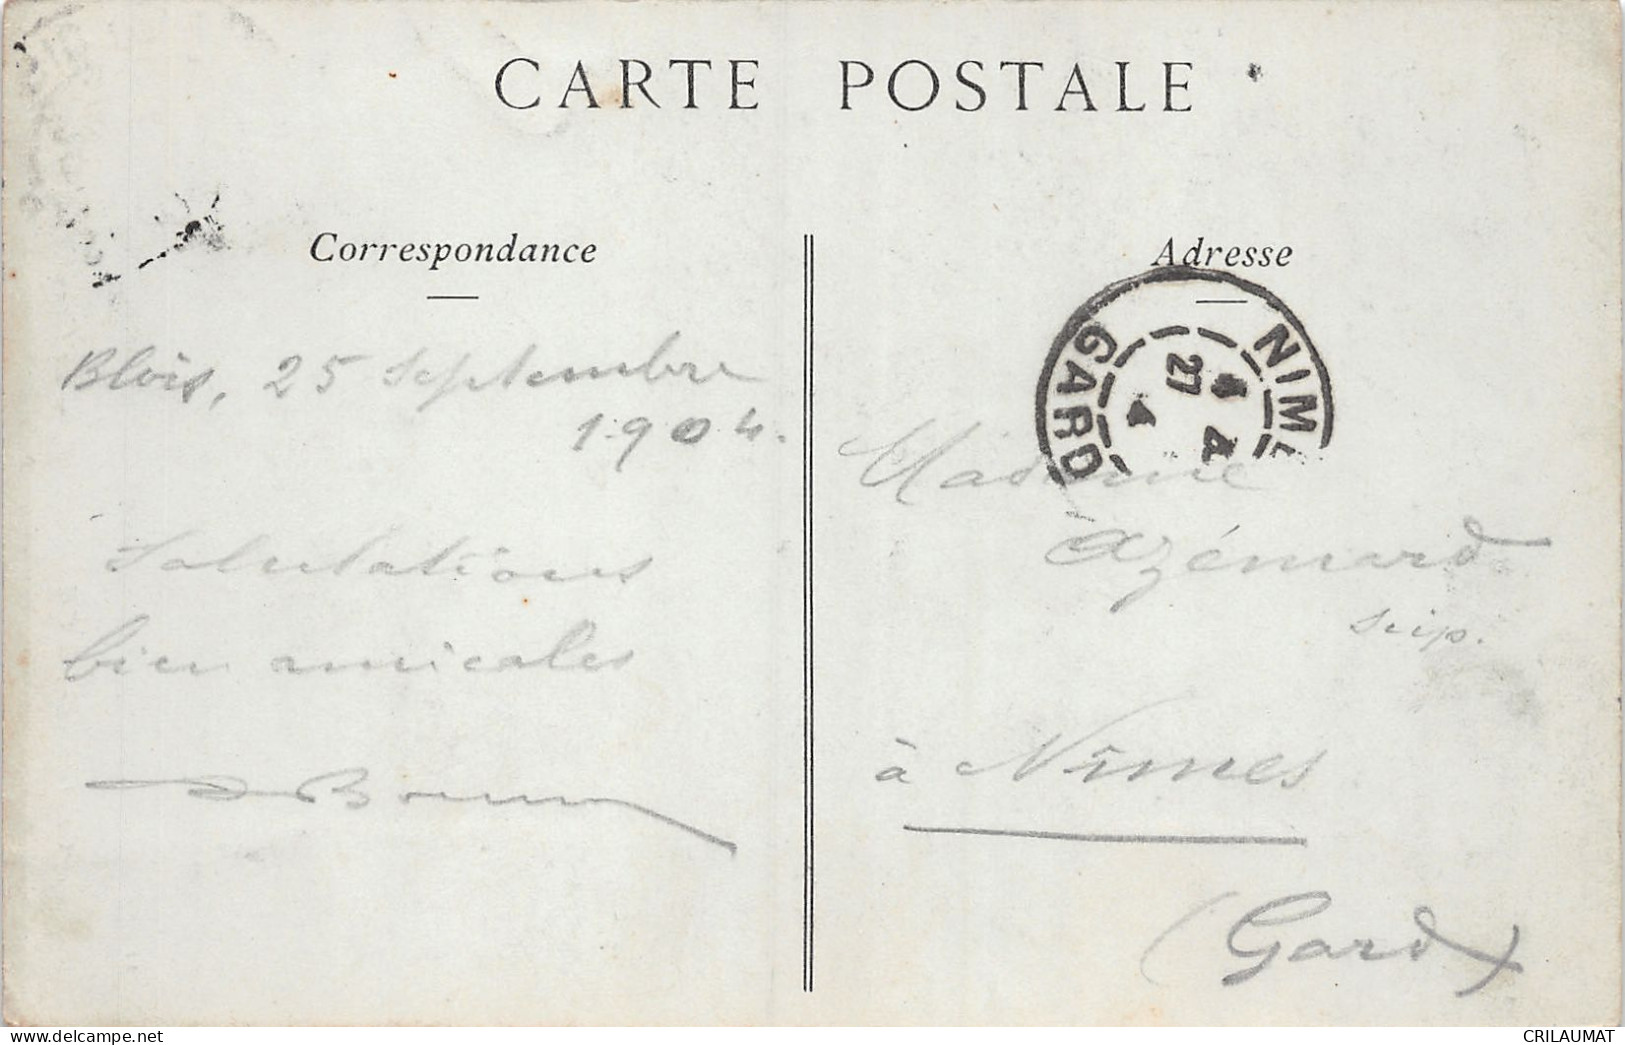 CARTE POSTALE
Correspondance
Blois, 25 Septembre
1904.
Salutations
bien amicales
Adresse
NIM
GARD
27
4
Madame
Azémard
à Nîmes
(Gard)
CRILAUMAT